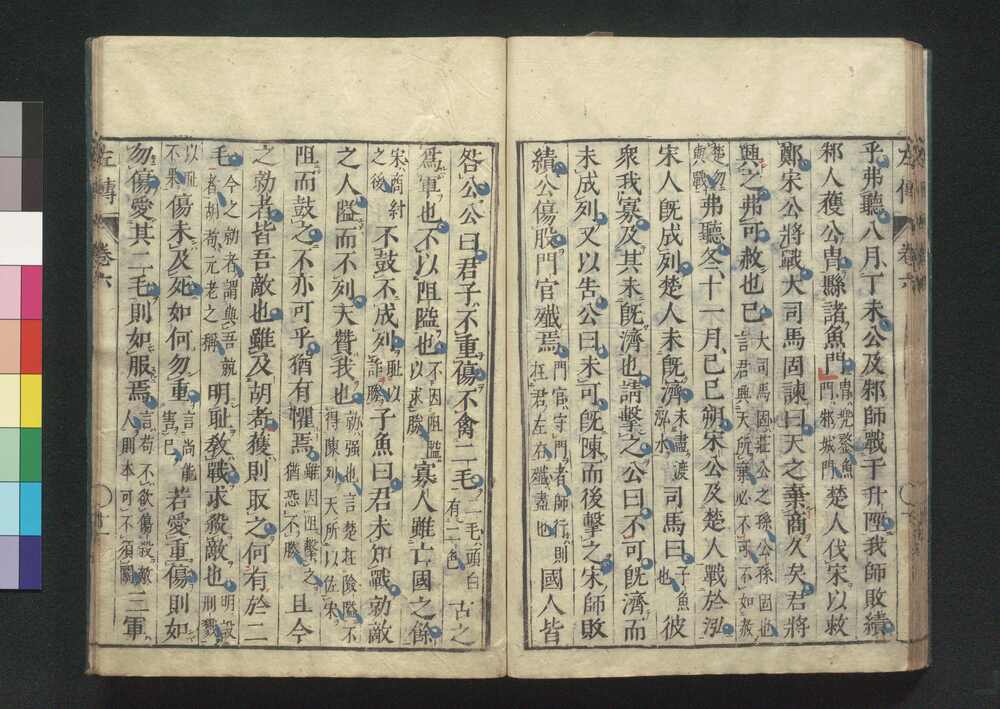 乎弗聽八月丁未公及邾師戰于升陘我師敗績
邾人獲公冑縣諸魚門冑兜鍪魚門邾城門楚人伐宋以救
鄭宋公將戰大司馬固諫曰天之棄商久矣君將
興之弗可赦也已大司馬固莊公之孫公孫固也言君興天所棄必不可不如赦
楚勿與戰弗聽冬十一月己巳朔宋公及楚人戰於泓
宋人既成列楚人未既濟未盡渡泓水司馬曰子魚也彼
衆我寡及其未既濟也請擊之公曰不可既濟而
未成列又以告公曰未可既陳而後擊之宋師敗
績公傷股門官殲焉門官守門者師行則在君左右殲盡也國人皆
左傳 卷六
咎公公曰君子不重傷不禽二毛二毛頭白有二色古之
爲軍也不以阻隘也不因阻隘以求勝寡人雖亡國之餘
宋商紂之後不鼓不成列恥以詐勝子魚曰君未知戰勍敵
之人隘而不列天贊我也勍强也言楚在險隘不得陳列天所以佐宋
阻而鼓之不亦可乎猶有懼焉雖因阻擊之猶恐不勝且今
之勍者皆吾敵也雖及胡耇獲則取之何有於二
毛今之勍者謂與吾競者胡耇元老之稱明恥教戰求殺敵也明設刑戮
以恥不果傷未及死如何勿重言尚能害己若愛重傷則如
勿傷愛其二毛則如服焉言苟不欲傷殺敵人則本可不須鬭三軍
左傳 卷六